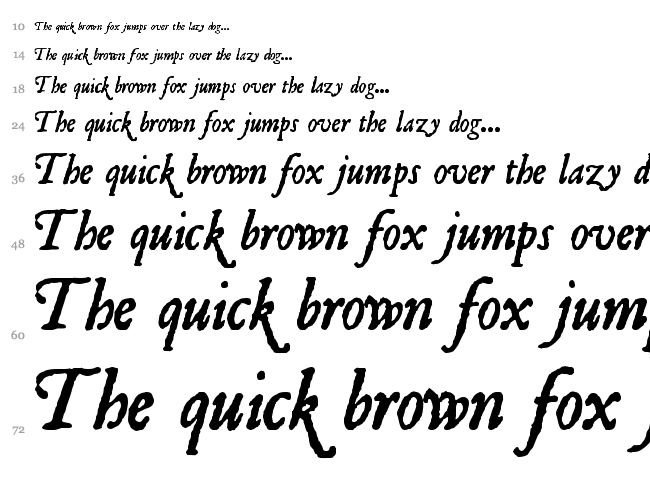 10 The quick brown fox jumps over the lazy dog...
14 The quick brown fox jumps over the lazy dog...
18 The quick brown fox jumps over the lazy dog...
24 The quick brown fox jumps over the lazy dog...
36 The quick brown fox jumps over the lazy d
48 The quick brown fox jumps over
60 The quick brown fox jump
72 The quick brown fox j